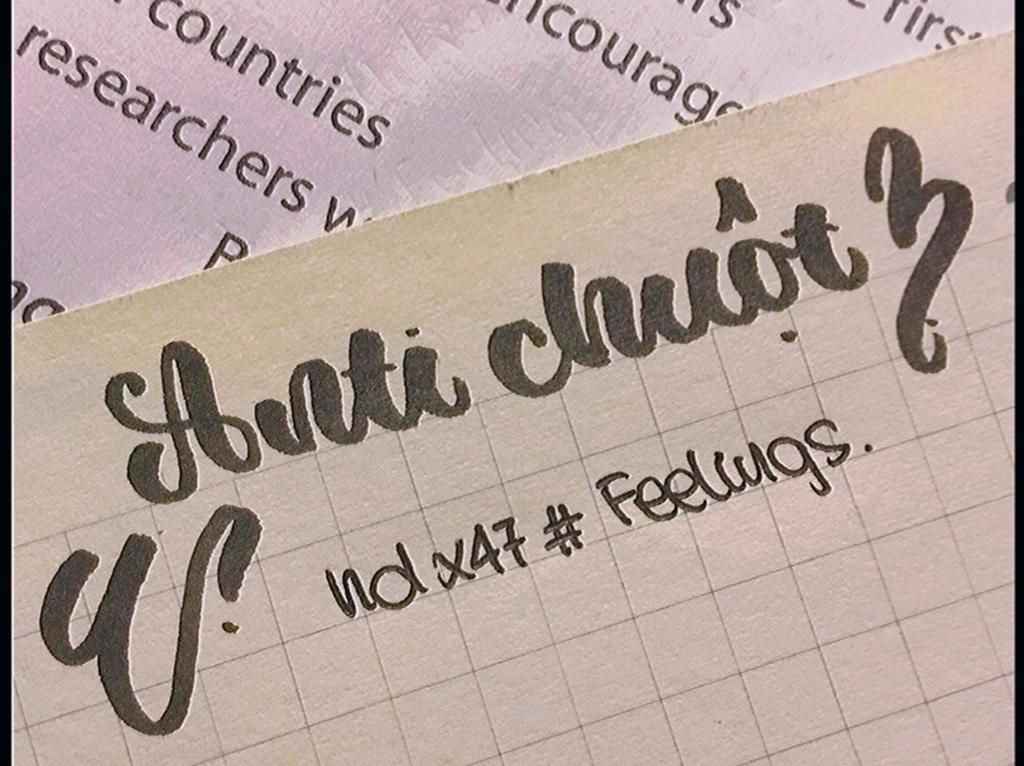 countries
encourage
first
researchers
Anti chuột
nd x47 # Feelings.